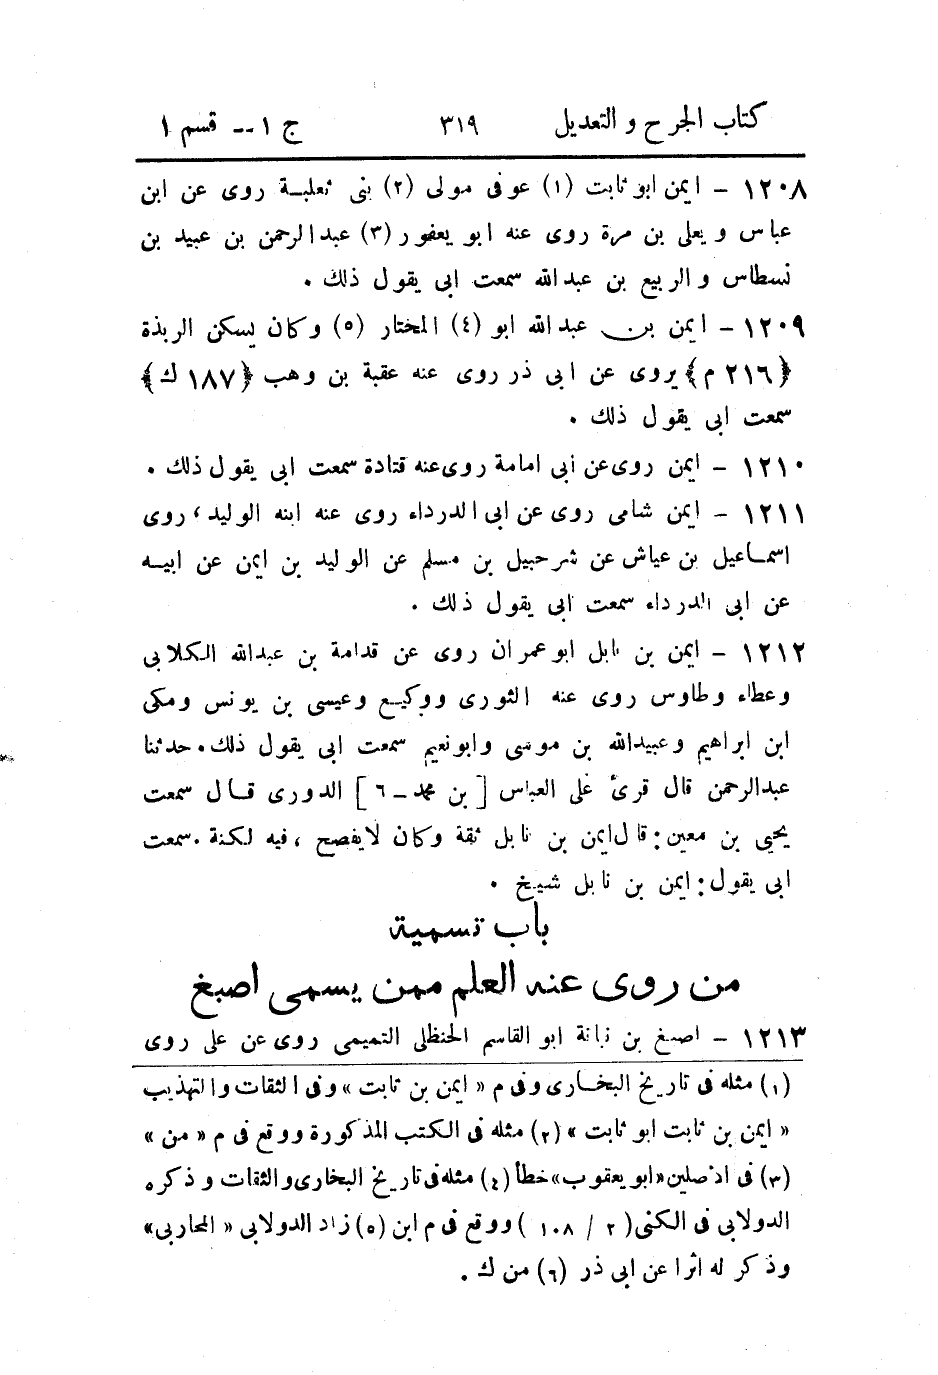 كتاب الجرح و التعديل ٣١٩ ج ١ -- قسم ١
١٢٠٨ - ايمن ابو ثابت (١) عوفى مولى (٢) بنى ثعلبة روى عن ابن
عباس و يعلى بن مرة روى عنه ابو يعفور (٣) عبدالرحمن بن عبيد بن
نسطاس و الربيع بن عبدالله سمعت ابى يقول ذلك .
١٢٠٩ - ايمن بن عبدالله ابو (٤) المختار (٥) وكان يسكن الربذة
﴿٢١٦ م﴾ يروى عن ابى ذر روى عنه عقبة بن وهب ﴿١٨٧ ك﴾
سمعت ابى يقول ذلك .
١٢١٠ - ايمن روى عن أبى امامة روى عنه قتادة سمعت ابى يقول ذلك .
١٢١١ - ايمن شامى روى عن ابى الدرداء روى عنه ابنه الوليد، روى
اسماعيل بن عياش عن شرحبيل بن مسلم عن الوليد بن ايمن عن ابيه
عن ابى الدرداء سمعت ابى يقول ذلك .
١٢١٢ - ايمن بن نابل ابو عمران روى عن قدامة بن عبدالله الكلابى
وعطاء وطاوس روى عنه الثورى ووكيع وعيسى بن يونس ومكى
ابن ابراهيم وعبيدالله بن موسى وابونعيم سمعت ابى يقول ذلك . حدثنا
عبدالرحمن قال قرئ على العباس [ بن محمد - ٦ ] الدورى قال سمعت
يحيى بن معين: قال ايمن بن نابل ثقة وكان لا يفصح ، فيه لكنة . سمعت
ابى يقول: ايمن بن نابل شيخ .
باب تسمية
من روى عنه العلم ممن يسمى اصبغ
١٢١٣ - اصبغ بن نباتة ابو القاسم الحنظلى التميمى روى عن على روى
(١) مثله فى تاريخ البخارى وفى م « ايمن بن ثابت » وفى الثقات والتهذيب
« ايمن بن ثابت ابو ثابت » (٢) مثله فى الكتب المذكورة ووقع فى م « من »
(٣) فى الاصلين «ابو يعقوب» خطأ (٤) مثله فى تاريخ البخارى والثقات و ذكره
الدولابى فى الكنى ( ٢ / ١٠٨ ) ووقع فى م ابن (٥) زاد الدولابى « المحاربى »
وذكر له اثرا عن ابى ذر (٦) من ك .